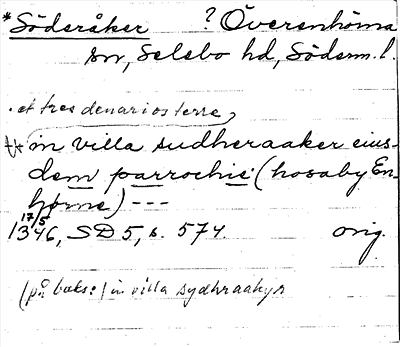 *Söderåker ? Överenhörna
sn, Selebo hd, Söderm. l.
. et tres denarios terre,
in villa sudheraaker eius-
dem parrochie (hosaby En-
hørne) ---
17/5
1346, SD 5, s. 574. orig.
(på baks:) in villa sydhraakyr